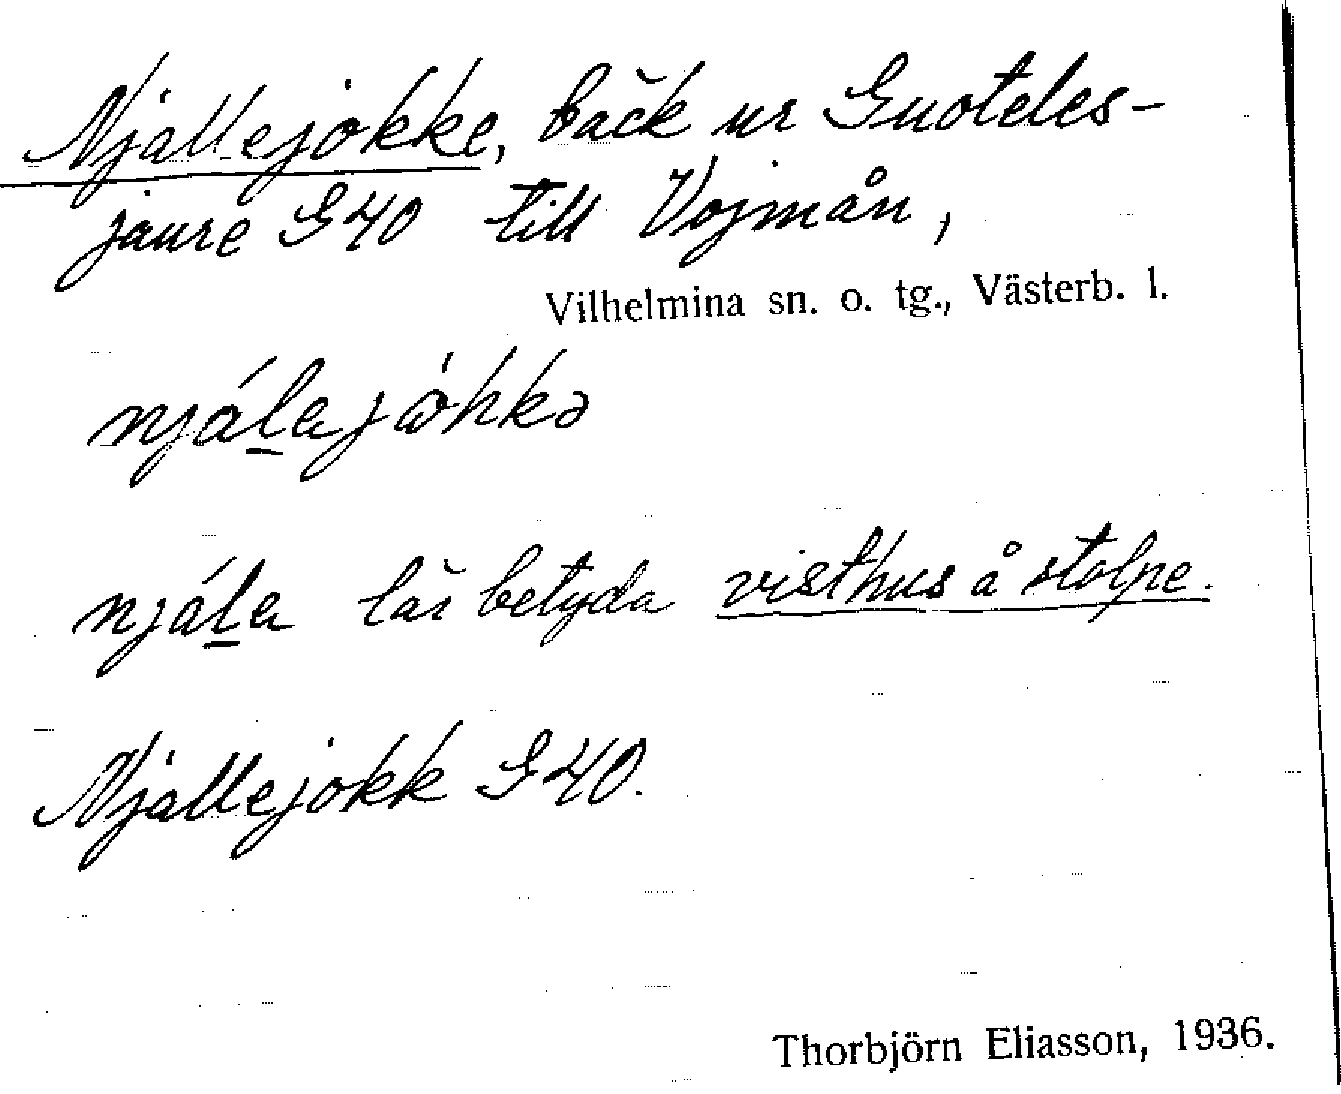 Njallejokke, bäck ur Guoteles-
jaure G40 till Vojmån,
Vilhelmina sn. o. tg., Västerb. l.
njál̲ajåhkə
njál̲a lär betyda visthus å stolpe.
Njallejokk G40.
Thorbjörn Eliasson, 1936.